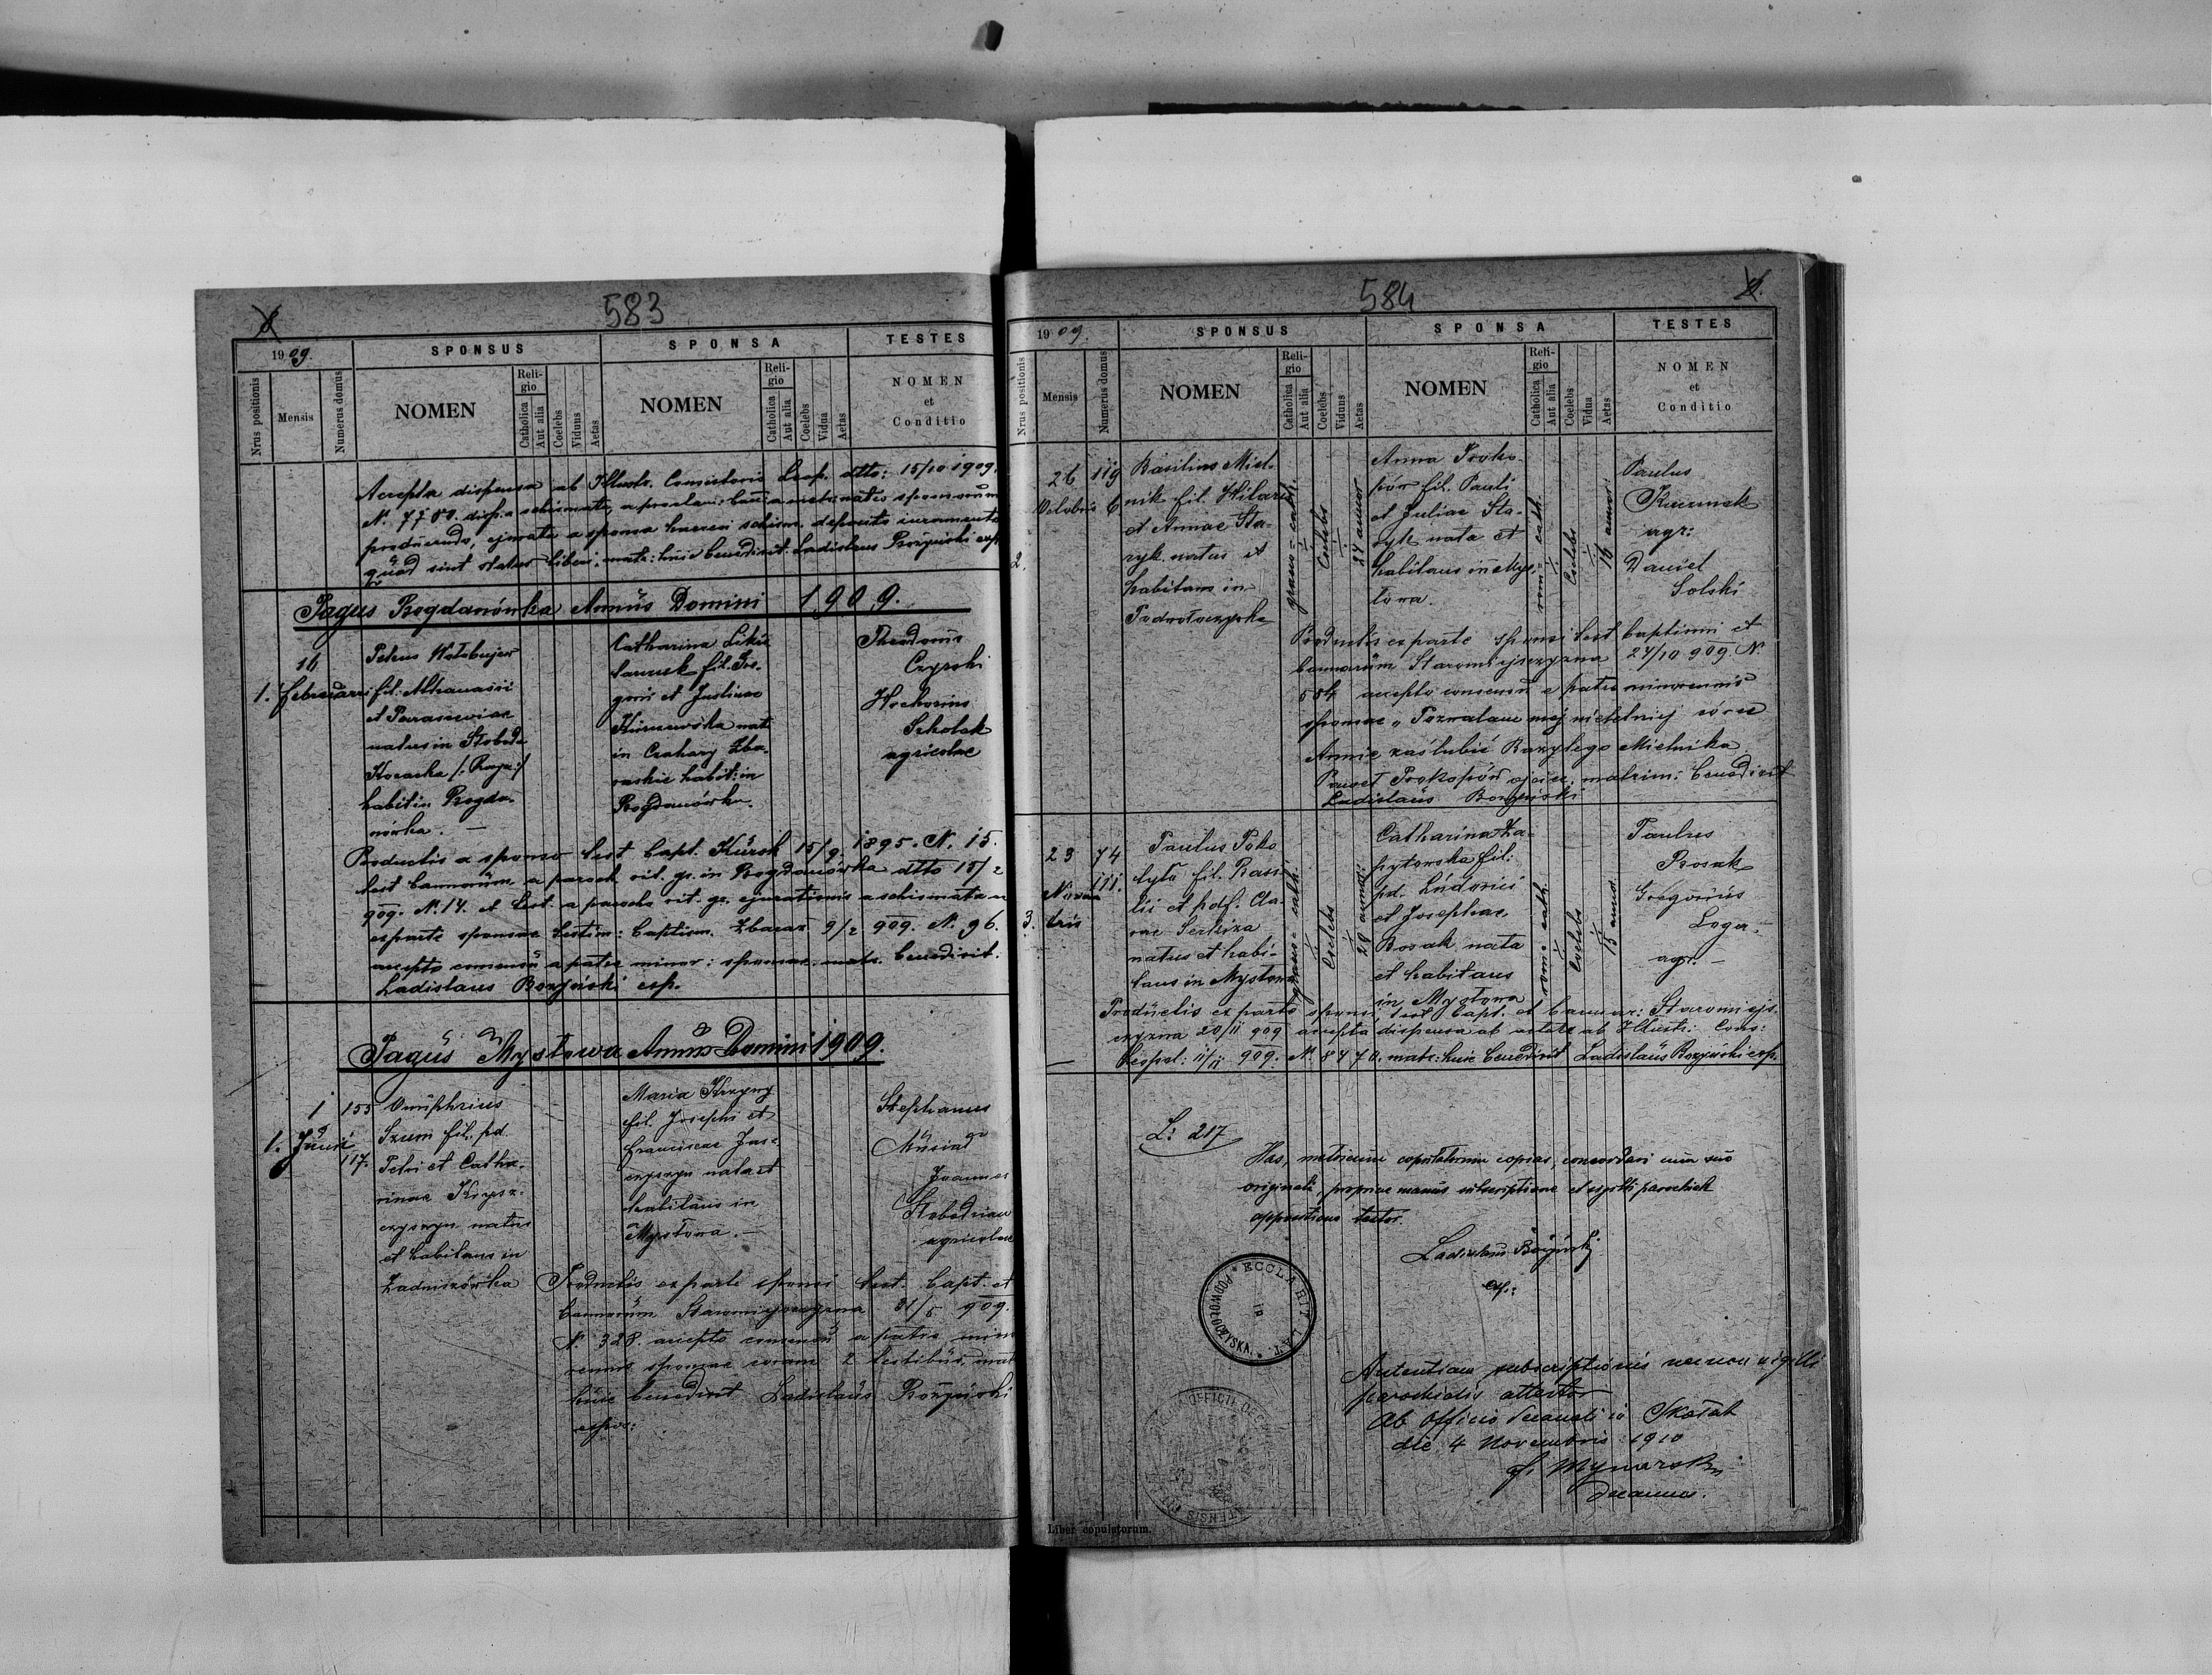 583
1909.
SPONSUS
SPONSA
TESTES
Nrus positionis
Mensis
Numerus domus
NOMEN
Religio
Catholica
Aut alia
Coelebs
Viduus
Aetas
NOMEN
Religio
Catholica
Aut alia
Coelebs
Vidua
Aetas
NOMEN
et
Conditio
Accepta dispensa ab Illustr. Consistorio Leop. dtto: 15/10 1909.
N. 7780. disp. a schismate, a proclam: bann: a metr: natis sponsorum
producendo, ejurata a sponsa haeresi schism. deposito iuramento
quod sint status liberi, matr: huic benedixit Ladislaus Bożyński exp.
Pagus Bogdanówka Annus Domini 1909.
1.
16
februarii
Petrus Wołobujew
fil. Athanasii
et Parascewiae
natus in Słoboda
Kozacka /: Rosya :/
habit in Bogda-
nówka. —
Catharina
fil. Gre-
gorii et Justinae
nata
in Czahary Zba-
raskie habit: in
Bogdanówka.
Theodorus
Czyrski
Szkolak
agricolae
Productis a sponso test. bapt. Kursk 15/9. 1895. N. 15.
test bannorum a paroch rit. gr. in Bogdanówka dtto 15/2
909. N. 14. et test. a parocho rit. gr. ejurationis a schismate
ex parte sponsae testim: baptism. Zbaraż 9/2 909. N. 96.
accepto consensu a patre minor: sponsae. matr. benedixit.
Ladislaus Bożyński exp.
Pagus Mysłowa Annus Domini 1909.
1.
1
Junii
155
117.
Onuphrius
Szum fil. pd.
Petri et Catha-
rinae Krysz-
czyszyn natus
et habitans in
Zadniszówka
Maria
fil. Josephi et
Franciscae Jasz-
czyszyn nata et
habitans in
Mysłowa. —
Stephanus
Joannes
Słobodzian
agricolae
Productis ex parte sponsi test. bapt. et
bannorum Staromiejszczyzna 31/5 909.
N. 328. accepto consensu a patre mino-
rennis sponsae coram 2 testibus, mat
huic benedixit Ladislaus Bożyński
expos:
584
1909.
SPONSUS
SPONSA
TESTES
Nrus positionis
Mensis
Numerus domus
NOMEN
Religio
Catholica
Aut alia
Coelebs
Viduus
Aetas
NOMEN
Religio
Catholica
Aut alia
Coelebs
Vidua
Aetas
NOMEN
et
Conditio
2.
26
Octobris
119
6
Basilius Miel-
nik fil. Hilarii
et Annae Sta-
ryk natus et
habitans in
Podwołoczyska
graeco-cath.
Coelebs
24 annor
Anna Proko-
pów fil. Pauli
et Juliae Sta-
ryk nata et
habitans in Mys-
łowa.
rom. cath.
Coelebs
16 annor:
Paulus
Kuczmak
agr:
Daniel
Solski
Productis ex parte sponsi test baptismi et
bannorum Staromiejszczyzna 24/10 909. N.
584 accepto consensu a patre minorennis
sponsae „Pozwalam mej nieletniej córce
Annie zaślubić Bazylego Mielnika
Paweł Prokopów ojciec. matrim: benedixit
Ladislaus Bożyński
3.
23
Novem
bris
74
111.
Paulus Poko
tyło fil. Basi-
lii et pdf. Cla-
rae Serkiza
natus et habi-
tans in Mysłowa
graeco-cath.
Coelebs
29 annor:
Catharina Za-
pytowska fil:
pd. Ludovici
et Josephae
Bosak nata
et habitans
in Mysłowa
rom. cath.
Coelebs
15 annor
Paulus
Bosak
Gregorius
Loga
agr. —
Productis ex parte sponsi test bapt. et bannor: Staromiejs-
czyzna 20/11 909 accepta dispensa ab aetate ab Illustr: Cons:
Leopol: 11/11 909. N. 8470. matr: huic benedixit Ladislaus Bożyński exp.
L: 217
Has, metricum copulatorum copias, concordari cum suo
originali, propriae manus subscriptione et sigilli parochialis
appositione testor.
Ladislaus Bożyński
exp:
ECCL. RIT. LAT.
IN
PODWOŁOCZYSKA
Autentiam subscriptionis necnon sigilli
parochialis attestor
Ab Officio decanali in Skałat
die 4 Novembris 1910
decanus.
Liber copulatorum.